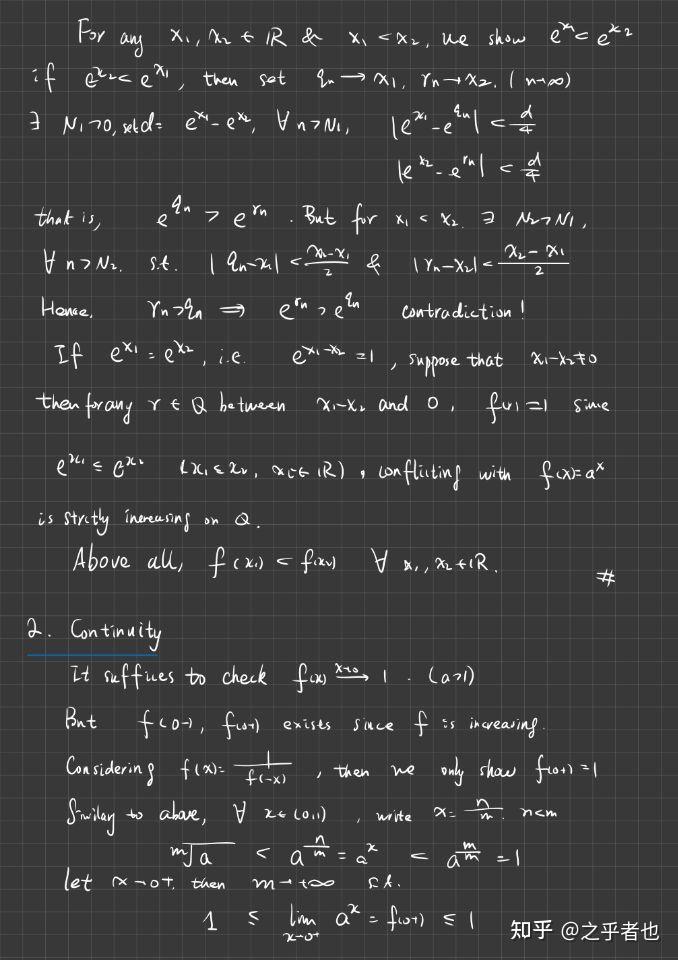 For any x₁, x₂ ∈ ℝ & x₁ < x₂, we show e^{x₁} < e^{x₂}
if e^{x₂} < e^{x₁}, then set qₙ → x₁, rₙ → x₂. (n→∞)
∃ N₁>0, set d = e^{x₁} - e^{x₂}, ∀ n>N₁, |e^{x₁} - e^{qₙ}| < d/4
|e^{x₂} - e^{rₙ}| < d/4
that is, e^{qₙ} > e^{rₙ}. But for x₁ < x₂. ∃ N₂>N₁,
∀ n>N₂. s.t. |qₙ-x₁| < (x₂-x₁)/2 & |rₙ-x₂| < (x₂-x₁)/2
Hence, rₙ>qₙ ⟹ e^{rₙ} > e^{qₙ} contradiction!
If e^{x₁} = e^{x₂}, i.e. e^{x₁-x₂} = 1, suppose that x₁-x₂≠0
then for any r ∈ Q between x₁-x₂ and 0, f(r) = 1 since
e^{x₁} ≤ e^{x₂} (x₁ ≤ x₂, xᵢ ∈ ℝ), conflicting with f(x)=a^x
is strictly increasing on Q.
Above all, f(x₁) < f(x₂) ∀ x₁, x₂ ∈ ℝ. #
2. Continuity
It suffices to check f(x) →^{x→0} 1. (a>1)
But f(0-), f(0+) exists since f is increasing.
Considering f(x) = 1/f(-x), then we only show f(0+) = 1
Similay to above, ∀ x ∈ (0,1), write x = n/m. n<m
ᵐ√a < a^{n/m} = a^x < a^{m/m} = 1
let x→0+. then m→+∞ s.t.
1 ≤ lim_{x→0+} a^x = f(0+) ≤ 1
知乎 @之乎者也